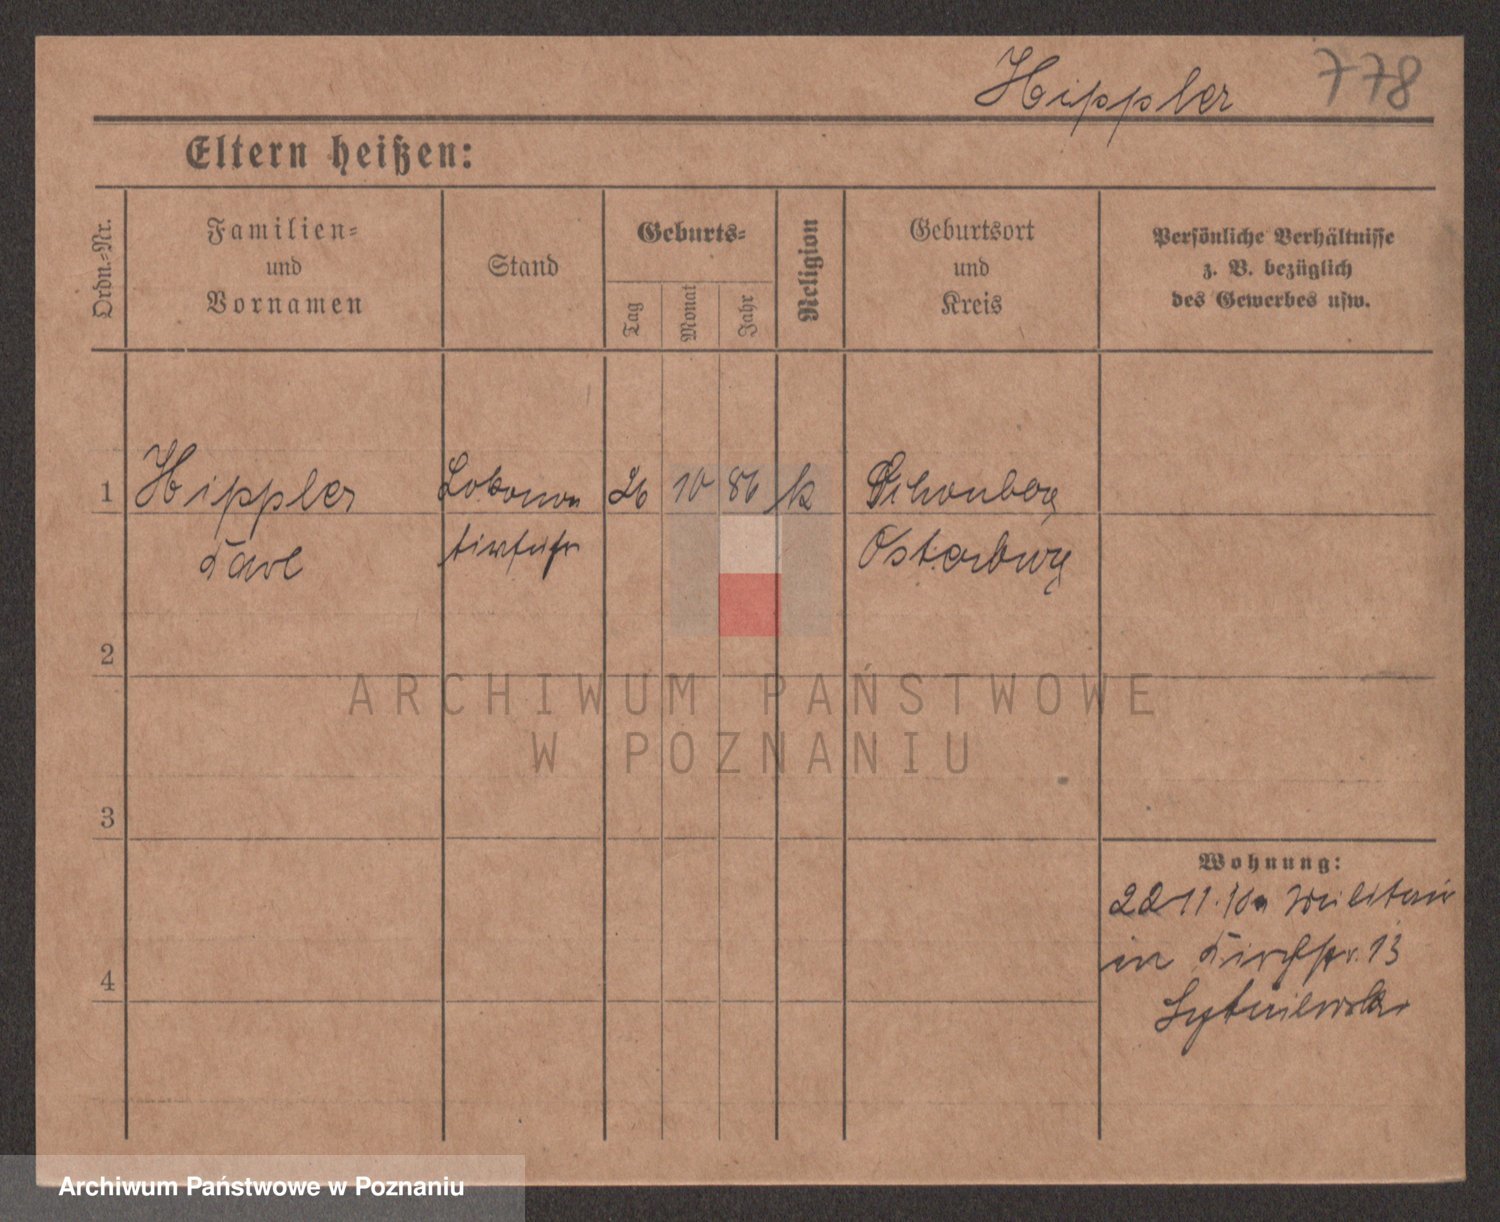 Hippler 778
Eltern heißen:
Ordn.-Nr.
Familien-
und
Vornamen
Stand
Geburts-
Tag
Monat
Jahr
Religion
Geburtsort
und
Kreis
Persönliche Verhältnisse
z. B. bezüglich
des Gewerbes usw.
1 Hippler 26 10 86 k
Karl Osterburg
2
ARCHIWUM PAŃSTWOWE
W POZNANIU
3
Wohnung:
in Kirchstr. 13
4
Archiwum Państwowe w Poznaniu